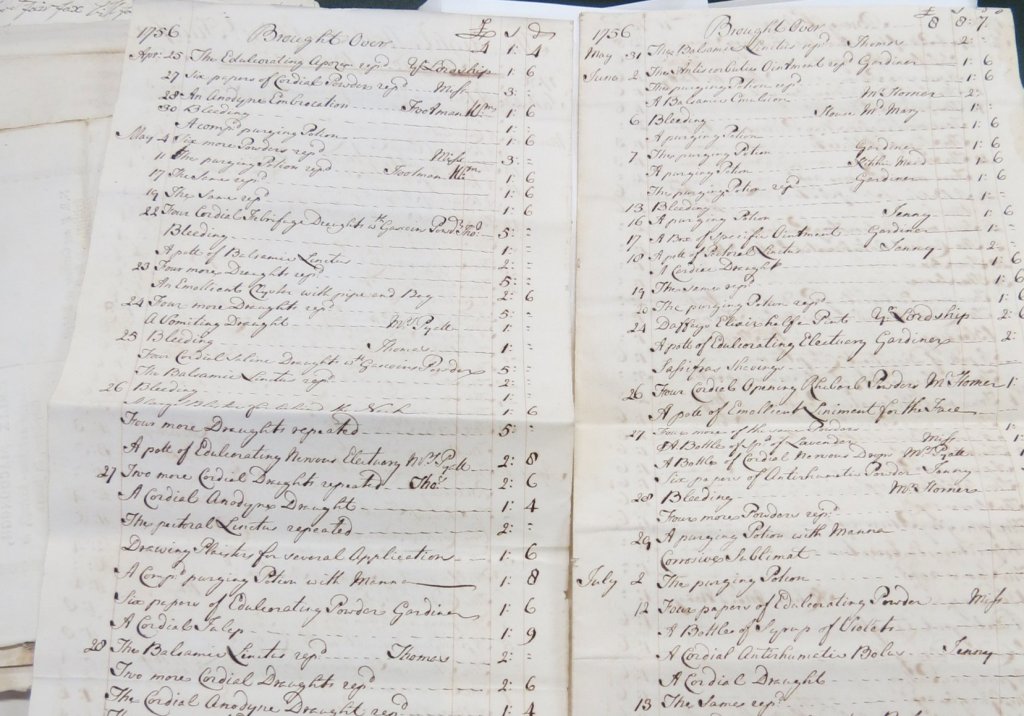 1756 Brought Over £ s d
4 1: 4
Apr: 25 The Edulcorating Apozem rep.d Yr Lordship 1: 6
27 Six papers of Cordial Powders rep.d Miss 3:
28 An Anodyne Embrocation Footman Wm. 1: 6
30 Bleeding 1:
A comp.d purging Potion 1: 6
May 4 Six more Powders rep.d Miss 3:
11 The purging Potion rep.d Footman Wm. 1: 6
17 The Same rep.d 1: 6
19 The Same rep.d 1: 6
22 Four Cordial Febrifuge Draughts wth Gascoin Powdrs Tho.s 5:
Bleeding 1:
A potte of Balsamic Linctus 2:
23 Four more Draughts rep.d 5:
An Emollient Clyster with pipe and Bag 2: 6
24 Four more Draughts rep.d 5:
A Vomiting Draught Mrs Pyott 1:
25 Bleeding Thomas 1:
Four Cordial Saline Draughts wth Gascoins Powders 5:
The Balsamic Linctus rep.d 2:
26 Bleeding 1:
1: 6
Four more Draughts repeated 5:
A potte of Edulcorating Nervous Electuary Mrs Pyott 2: 8
27 Two more Cordial Draughts repeated Tho.s 2: 6
A Cordial Anodyne Draught 1: 4
The pectoral Linctus repeated 2:
Drawing Plaister for several Application 1: 6
A Comp.d purging Potion with Manna 1: 8
Six papers of Edulcorating Powders Gardiner 1: 6
A Cordial Julep 1: 9
28 The Balsamic Linctus rep.d Thomas 2:
Two more Cordial Draughts rep.d 2: 6
The Cordial Anodyne Draught rep.d 1: 4
1756 Brought Over £ s d
8 8: 7
May 31 The Balsamic Linctus rep.d Thomas 2:
June 2 The Antiscorbutic Ointment rep.d Gardiner 1: 6
The purging Potion rep.d 1: 6
A Balsamic Emulsion Mrs Horner 2:
6 Bleeding House Md Mary 1:
A purging Potion 1: 6
7 The purging Potion Gardiner 1: 6
A purging Potion 1: 6
The purging Potion rep.d Gardiner 1: 6
13 Bleeding 1:
16 A purging Potion Jenny 1: 6
17 A Box of Specific Ointment Gardiner 1:
18 A potte of Pectoral Linctus Jenny 2:
A Cordial Draught 1: 6
19 The Same rep.d 1: 6
20 The purging Potion rep.d 1: 6
24 Daffeys Elixir halfe a Pint Yr Lordship 2: 6
A potte of Edulcorating Electuary Gardiner 2:
Sassifras Shavings
26 Four Cordial Opening Rhubarb Powders Mrs Horner 1:
A potte of Emollient Liniment for the Face
27 Four more of the same Powders
A Bottle of Sp.t of Lavender Miss
A Bottle of Cordial Nervous Drops Mrs Pyott
Six papers of Antirhumatic Powder Jenny
28 Bleeding Mrs Horner
Four more Powders rep.d
29 A purging Potion with Manna
Corrosive Sublimat
July 2 The purging Potion
12 Four papers of Edulcorating Powder Miss
A Bottle of Syrup of Violets
A Cordial Antirhumatic Bolus Jenny
A Cordial Draught
13 The Same rep.d